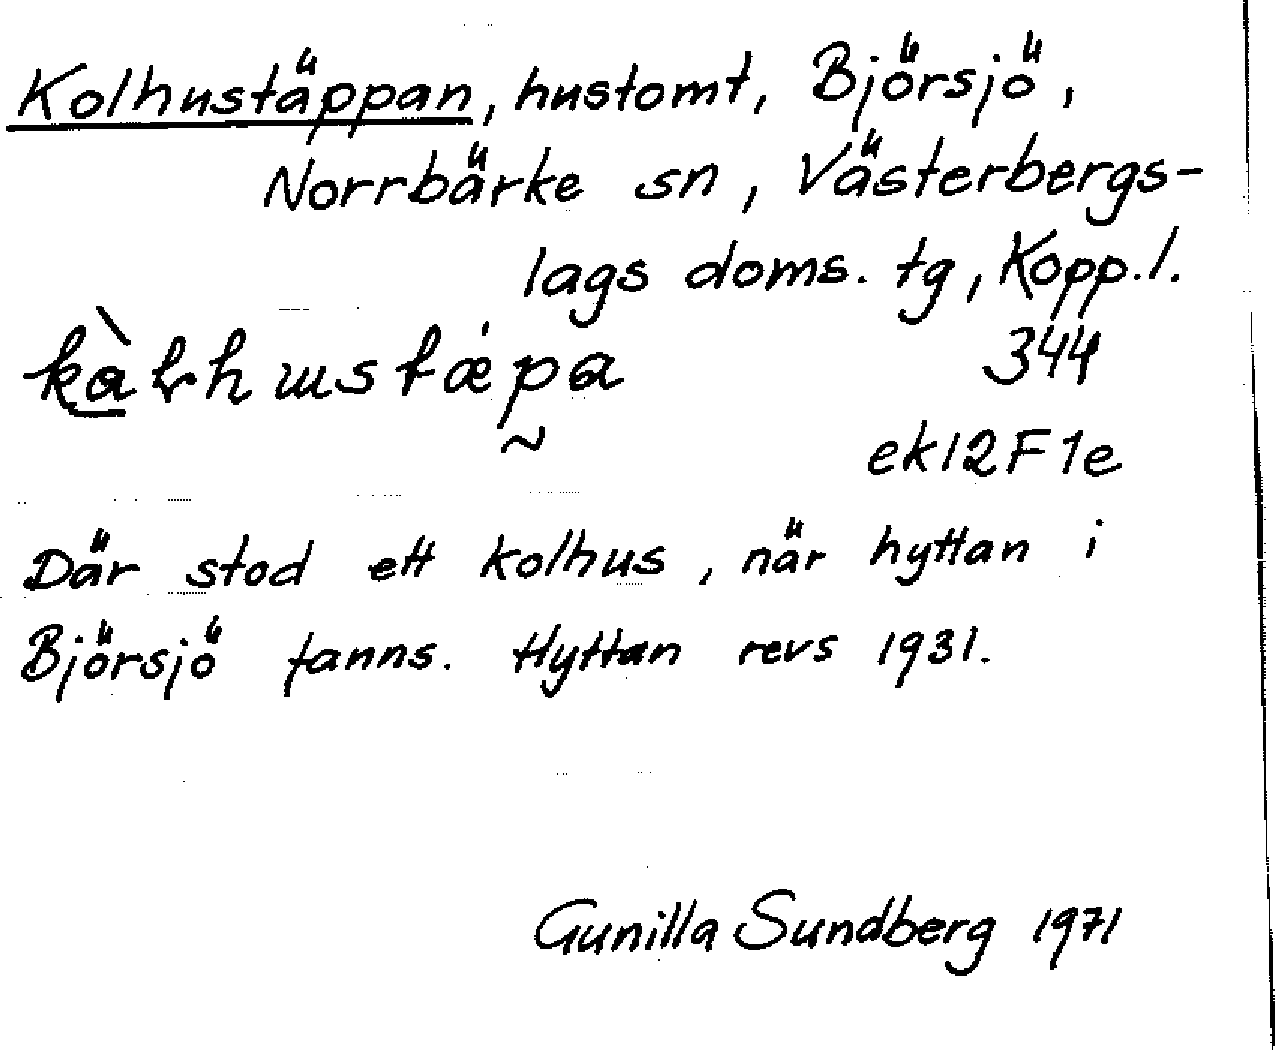 Kolhustäppan, hustomt, Björsjö,
Norrbärke sn, Västerbergs-
lags doms. tg, Kopp.l.
344
ek 12 F 1e
Där stod ett kolhus, när hyttan i
Björsjö fanns. Hyttan revs 1931.
Gunilla Sundberg 1971